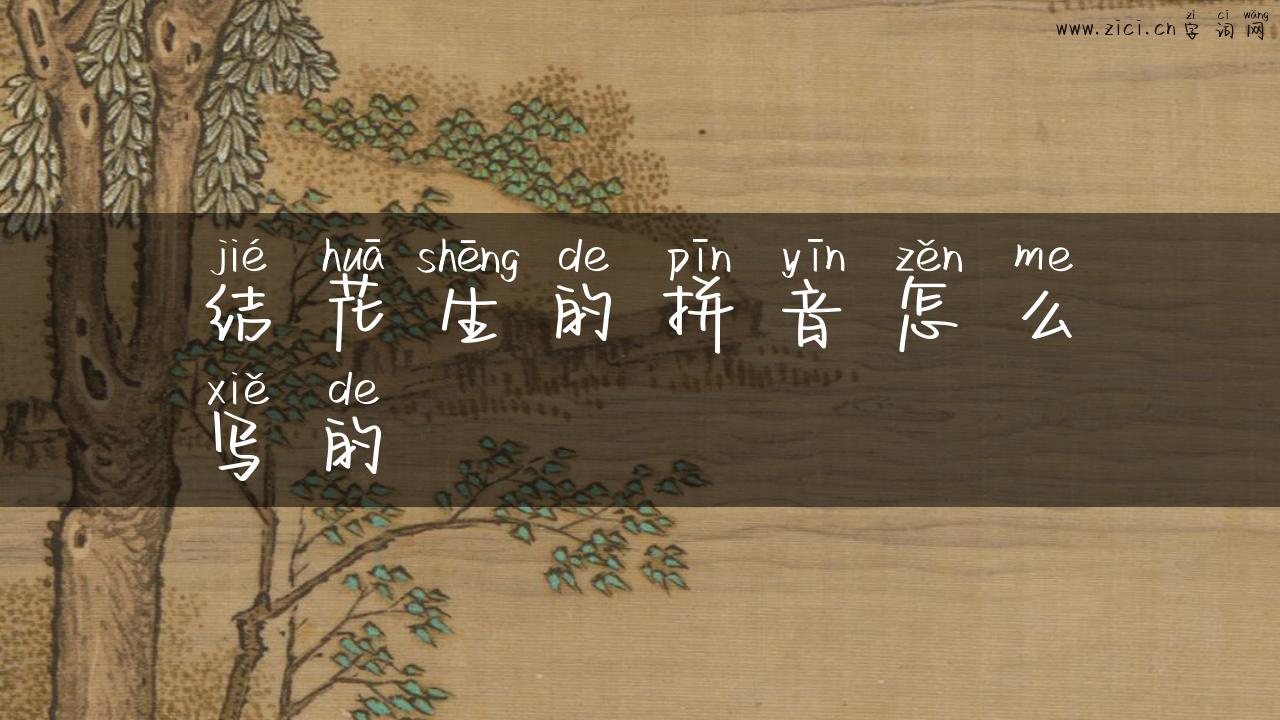 zì cí wǎng
www.zici.cn 字词网
jié huā shēng de pīn yīn zěn me
结花生的拼音怎么
xiě de
写的